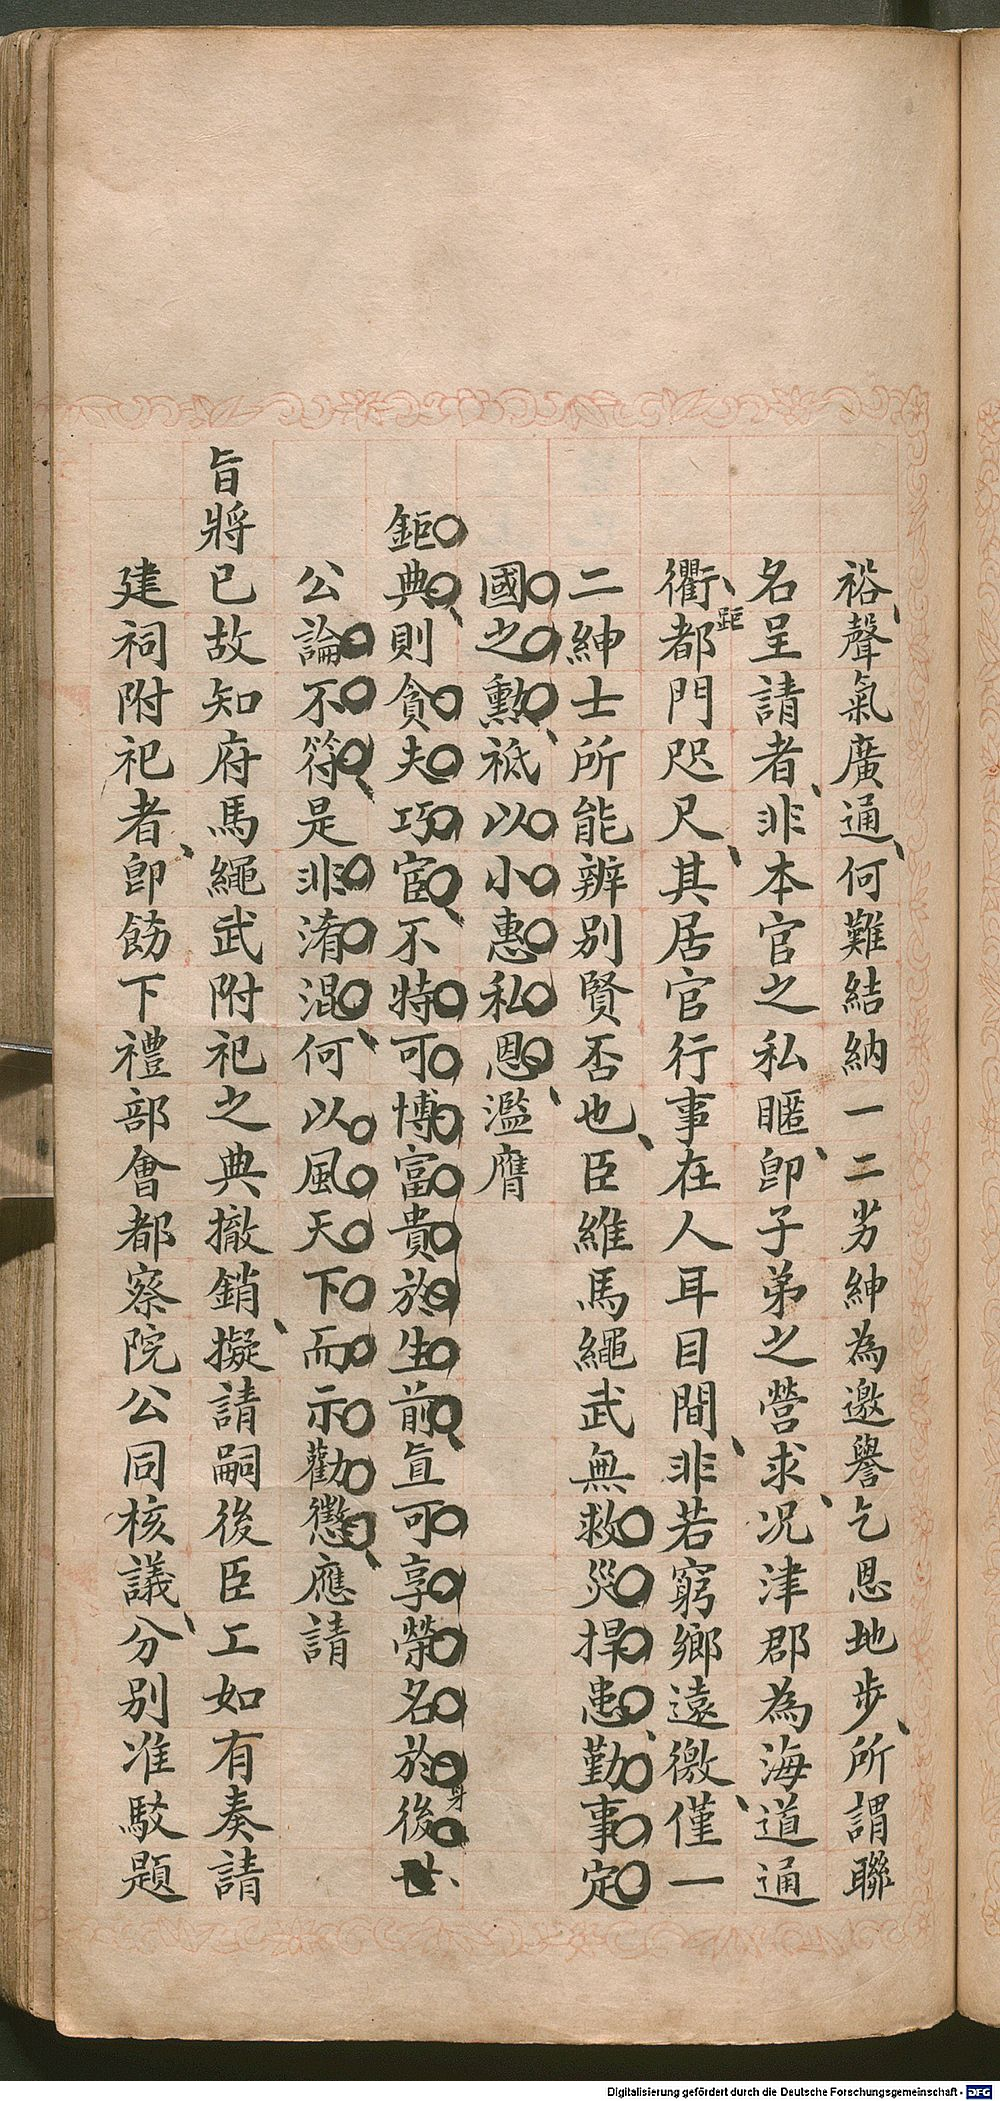 裕聲氣廣通何難結納一二劣紳為邀譽乞恩地步所謂聯
名呈請者非本官之私暱卽子弟之營求况津郡為海道通
衢距都門咫尺其居官行事在人耳目間非若窮鄉遠徼僅一
二紳士所能辨別賢否也臣維馬繩武無救災捍患勤事定
國之勲祗以小惠私恩濫膺
鉅典則貪夫巧宦不特可博富貴於生前直可享榮名於身後
公論不符是非淆混何以風天下而示勸懲應請
旨將已故知府馬繩武附祀之典撤銷擬請嗣後臣工如有奏請
建祠附祀者卽飭下禮部會都察院公同核議分別准駁題
Digitalisierung gefördert durch die Deutsche Forschungsgemeinschaft - DFG